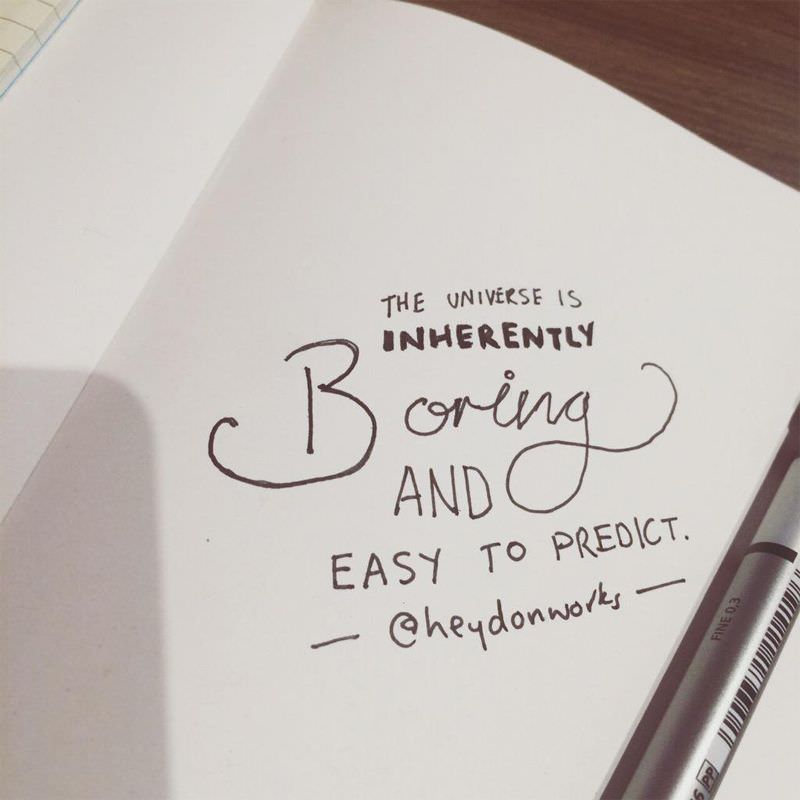 THE UNIVERSE IS
INHERENTLY
Boring
AND
EASY TO PREDICT.
— @heydonworks —
FINE 0.3
PP